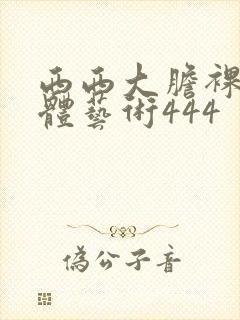 西西大膽裸
體藝術444
偽公子音